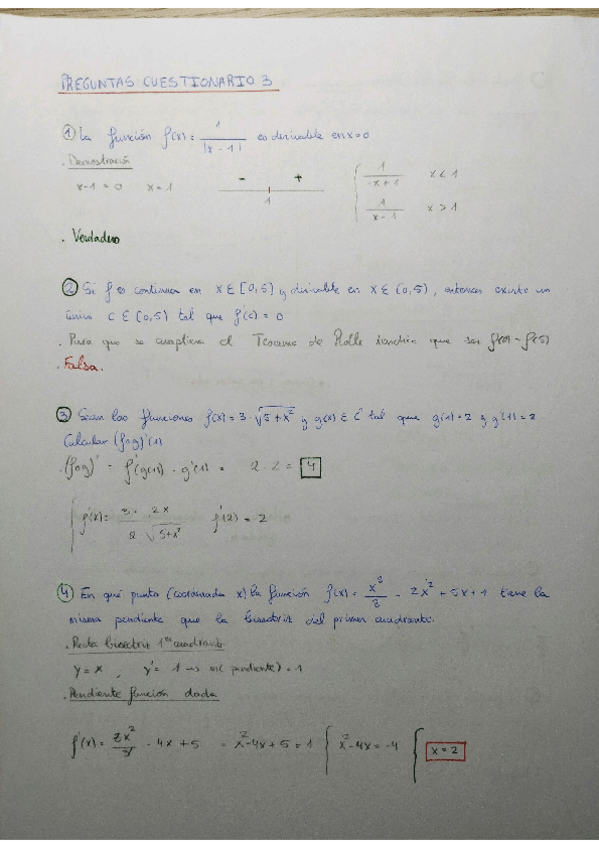 PREGUNTAS CUESTIONARIO 3
① La función f(x) = 1/|x-1| es derivable en x=0
. Demostració
x-1=0 x=1
- +
1
1/(-x+1) x<1
1/(x-1) x>1
. Verdadero
② Si f es continua en x∈[0,5] y derivable en x∈(0,5), entonces existe un
único c∈(0,5) tal que f'(c)=0
. Para que se cumpliera el Teorema de Rolle tendría que ser f(0)=f(5)
. Falsa.
③ Sean las funciones f(x)=3·√(5+x²) y g(x)∈C' tal que g(1)=2 y g'(1)=2.
Calcular (fog)'(1)
. (fog)' = f'(g(1))·g'(1) = 2·2 = 4
f'(x) = 3· 2x / 2√(5+x²) f'(2)=2
④ En qué punto (coordenada x) la función f(x) = x³/3 - 2x² + 5x + 1 tiene la
misma pendiente que la bisectriz del primer cuadrante.
. Recta bisectriz 1er cuadrante
y=x, y'=1 → m(pendiente)=1
. Pendiente función dada
f'(x) = 3x²/3 - 4x + 5 = x²-4x+5=1 { x²-4x=-4 { x=2